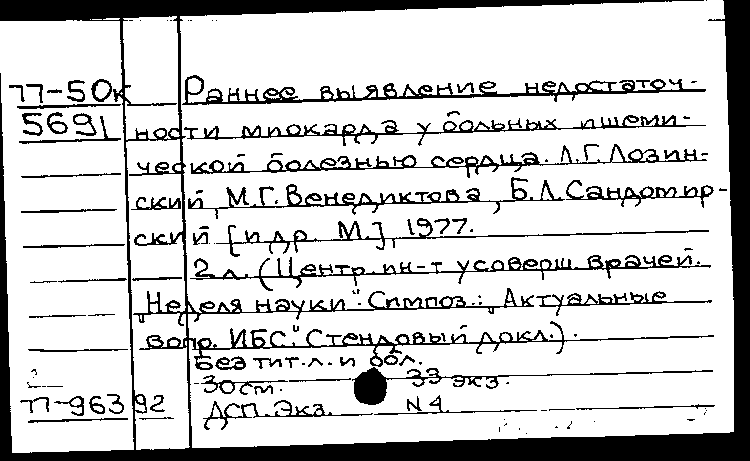 77-50к Раннее выявление недостаточ-
5691 ности миокарда у больных ишеми-
ческой болезнью сердца. Л.Г. Лозин-
ский, М.Г. Венедиктова, Б.Л. Сандомир-
ский [и др. М.], 1977.
2 л. (Центр. ин-т усоверш. врачей.
„Неделя науки". Симпоз.: „Актуальные
вопр. ИБС." Стендовый докл.).
Без тит. л. и обл.
30 см. 33 экз.
77-96392 ДСП. Экз. N 4.